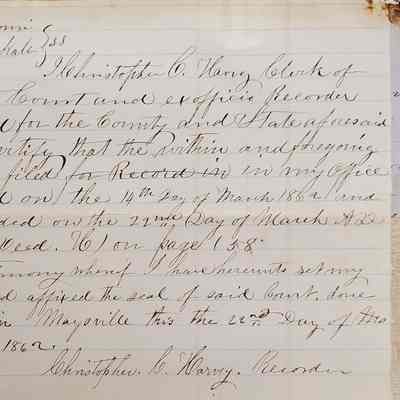 ouri
Kalb } SS
I Christopher C. Harvy Clerk of
Court and exofficio Recorder
for the County and State aforesaid
certify that the within and foregoing
filed for Record in in my office
on the 14th Day of March 1862 and
ded on the 22nd Day of March A D
Deed. H) on page 158.
timony whereof I have hereunto set my
d affixed the seal of said Court. done
in Maysville this the 22nd Day of
1862.
Christopher. C. Harvy. Recorder